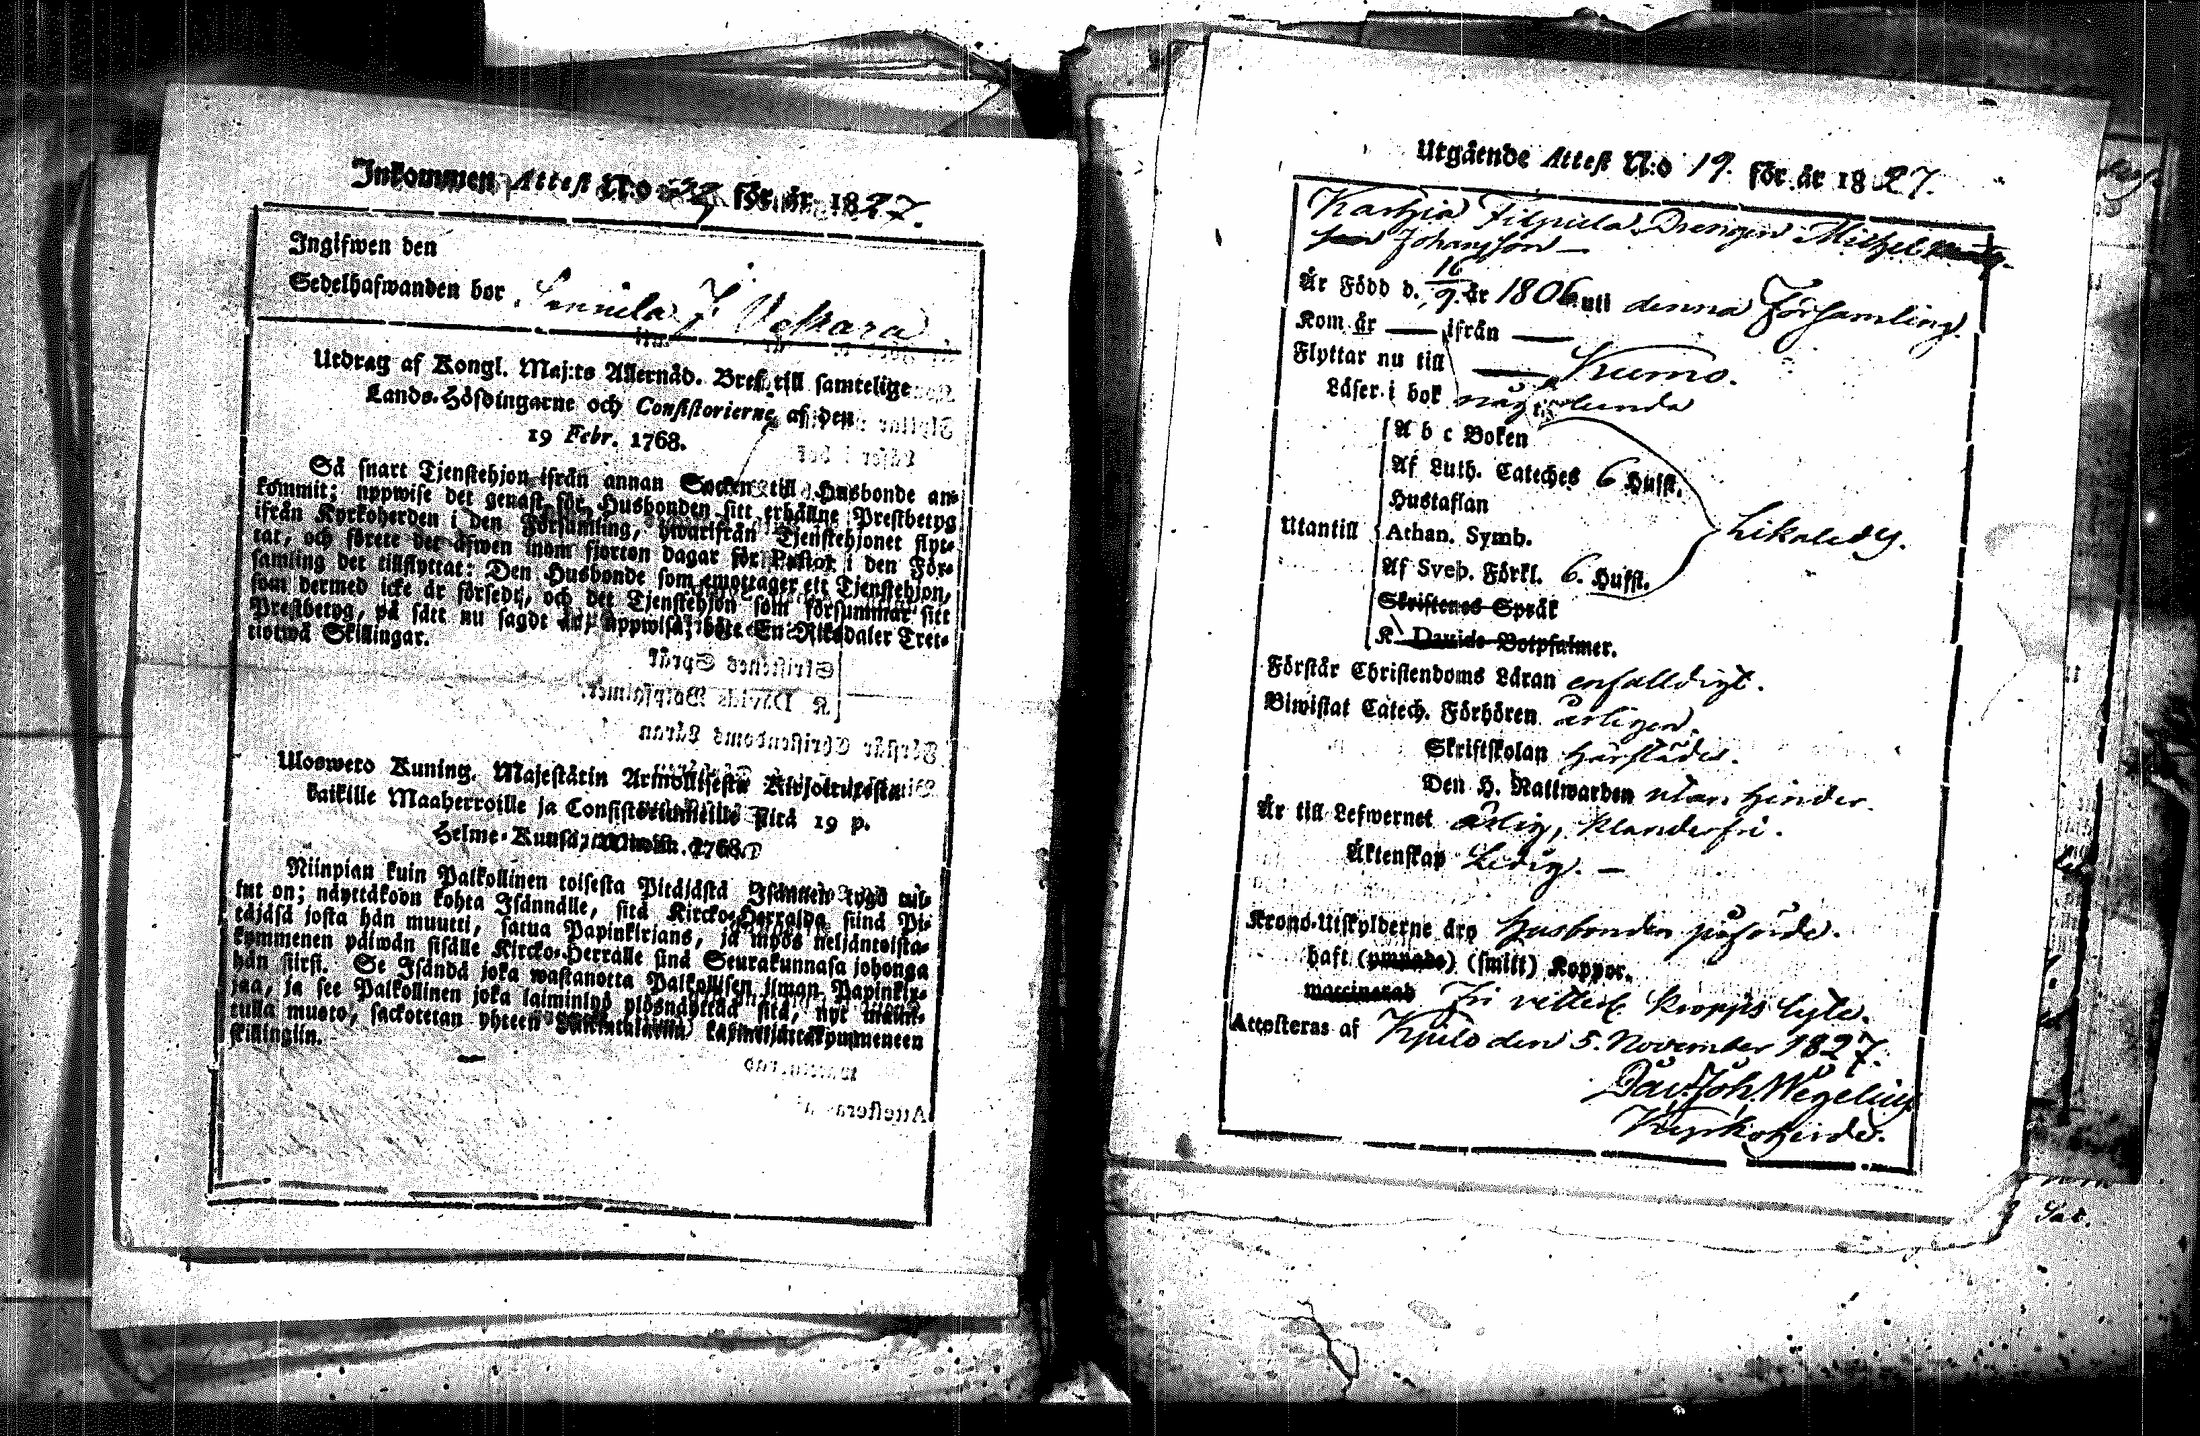 Inkommen Attest N:o 52 för år 1827.
Ingifwen den
Sedelhafwanden bor Sannila J Veskara
Utdrag af Kongl. Maj:ts Allernåd. Bref till samtelige
Lands-Höfdingarne och Consistorierne af den
19 Febr. 1768.
Så snart Tjenstehjon ifrån annan Socken till Husbonde an-
kommit; uppwise det genast för Husbonden sitt erhållne Prestbetyg
ifrån Kyrkoherden i den Församling, hwarifrån Tjenstehjonet flyt-
tat, och förete det äfwen inom fjorton dagar för Pastor i den För-
samling det tillflyttat: Den Husbonde som emottager ett Tjenstehjon,
som dermed icke är försedt, och det Tjenstehjon som försummar sitt
Prestbetyg, på sätt nu sagdt är, uppwisa, böte En Riksdaler Tret-
tiotwå Skillingar.
Uloswero Kuning. Majestätin Armollisesta Kirjoituxesta
kaikille Maaherroille ja Consistoriumeille sitä 19 p.
Helme-Kuusa, 1768.
Niinpian kuin Palkollinen toisesta Pitäjästä Isännen tygö tul-
lut on; näyttäköön kohta Isännälle, sitä Kircko-Herralda siinä Pi-
täjäsä josta hän muutti, saatua Papinkirjans, ja myös neljäntoista-
kymmenen päiwän sisälle Kircko-Herralle siinä Seurakunnasa johonga
hän siirsi. Se Isändä joka wastanotta Palkollisen ilman Papinkir-
jaa, ja see Palkollinen joka laiminlyö ylösnäyttää sitä, nyt
tulla muoto, sackotetan yhteen kahteenneljättäkymmeneen
skillingiin.
Utgående Attest N:o 19. för år 1827.
Karhia Filpula Drengen Michel
Johansson —
Är Född d. 16/9. år 1806 uti denna Församling.
Kom år — ifrån —
Flyttar nu till — Kumo.
Läser i bok någorlunda
A b c Boken
Af Luth. Cateches 6 Hufst.
Hustaflan
Utantill Athan. Symb. Likaledes.
Af Sveb. Förkl. 6. Hufst.
Skriftenes Språk
K. Davids Botpsalmer.
Förstår Christendoms Läran enfalldigt.
Biwistat Catech. Förhören årligen.
Skriftskolan härstädes.
Den H. Nattwarden utan hinder.
Är till Lefwernet ärlig, klanderfri.
Äktenskap Ledig. —
Krono-Utskylderne äro Husbonden påförde.
haft (ympade) (smitt) Koppor.
waccinerad Fri vitterl. kropps lyte.
Attesteras af Kjulo den 5. November 1827.
Dav. Joh. Wegelius
Kyrkoherde.